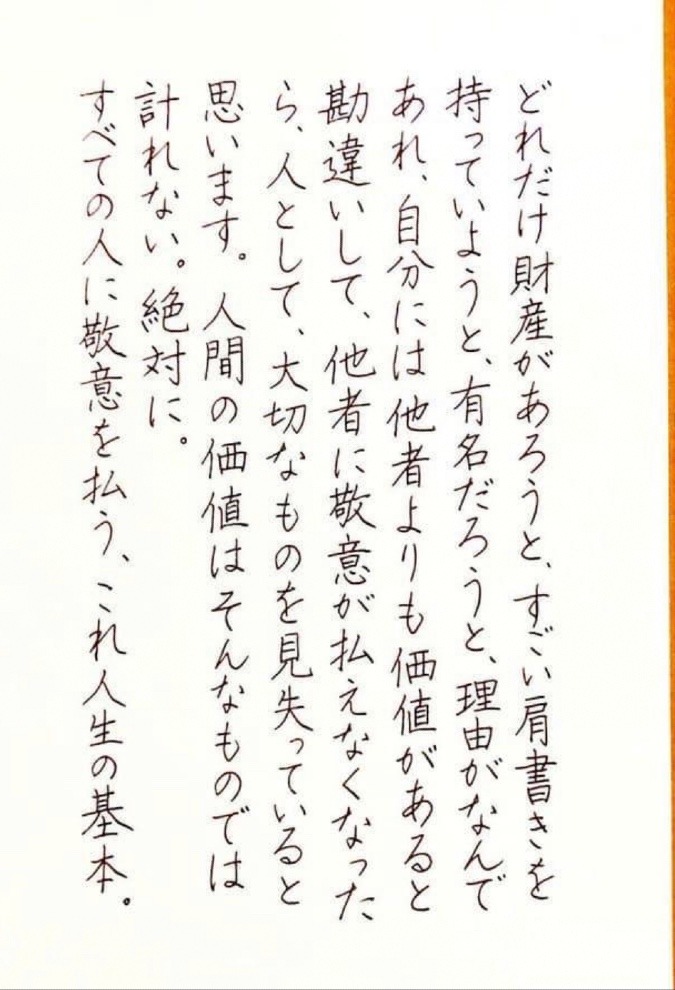 どれだけ財産があろうと、すごい肩書きを
持っていようと、有名だろうと、理由がなんで
あれ、自分には他者よりも価値があると
勘違いして、他者に敬意が払えなくなった
ら、人として、大切なものを見失っていると
思います。人間の価値はそんなものでは
計れない。絶対に。
すべての人に敬意を払う、これ人生の基本。